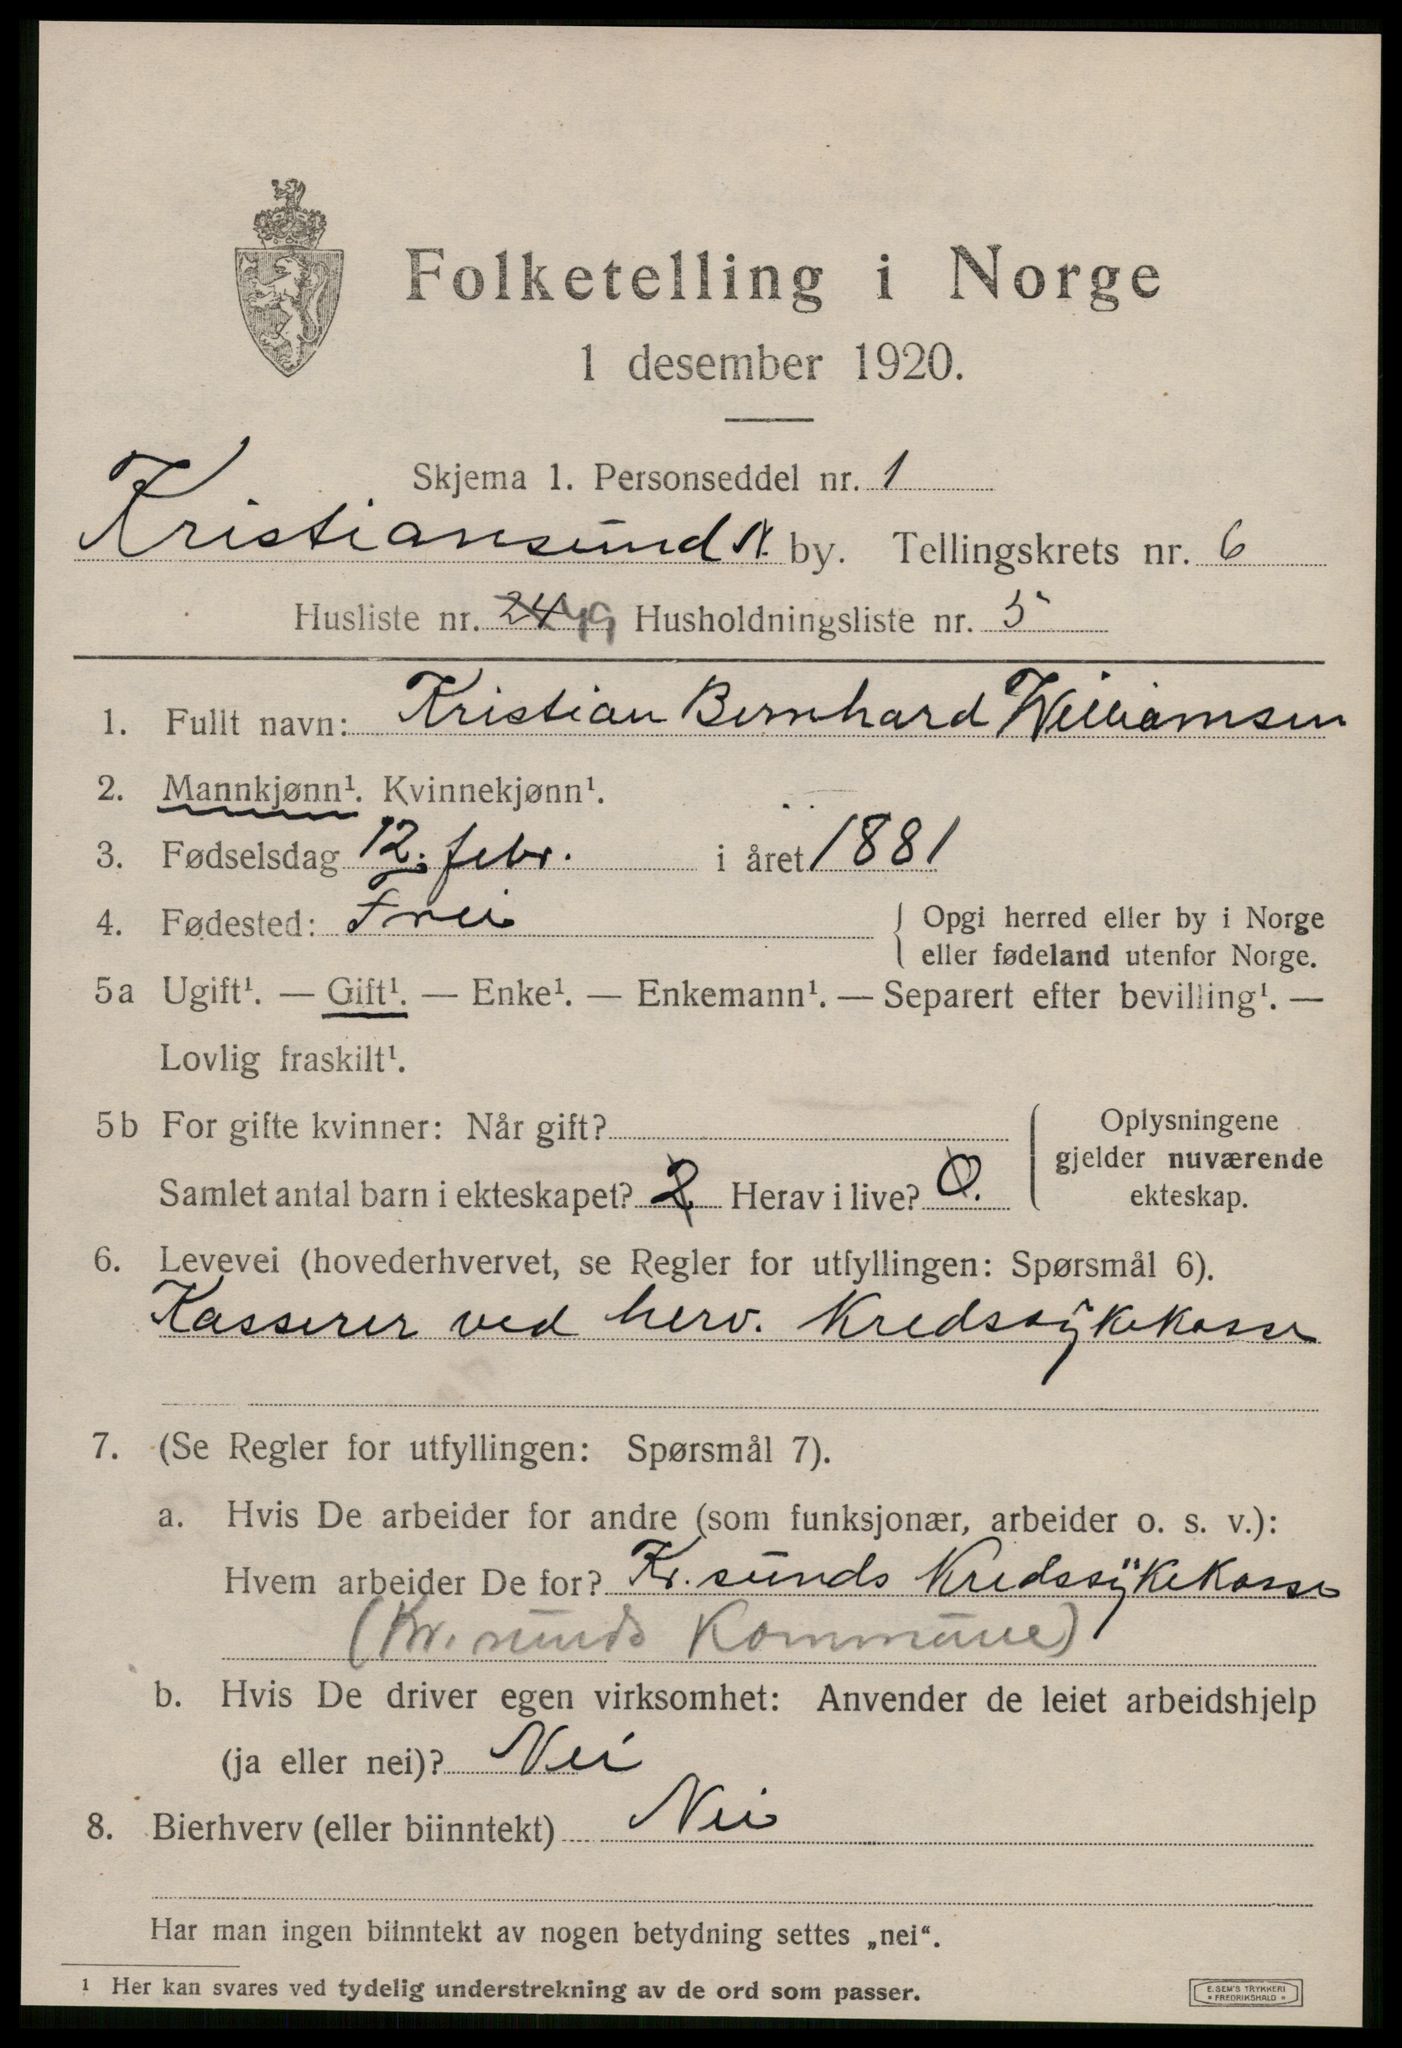 Folketelling i Norge
1 desember 1920.
Skjema 1. Personseddel nr. 1
Kristiansund N. by. Tellingskrets nr. 6
Husliste nr. 24 49 Husholdningsliste nr. 5
1. Fullt navn: Kristian Bernhard Williamsen
2. Mannkjønn¹. Kvinnekjønn¹.
3. Fødselsdag 12. febr. i året 1881
4. Fødested: Frei { Opgi herred eller by i Norge
eller fødeland utenfor Norge.
5a Ugift¹. — Gift¹. — Enke¹. — Enkemann¹. — Separert efter bevilling¹. —
Lovlig fraskilt¹.
5b For gifte kvinner: Når gift? { Oplysningene
gjelder nuværende
Samlet antal barn i ekteskapet? 2 Herav i live? 0.
ekteskap.
6. Levevei (hovederhvervet, se Regler for utfyllingen: Spørsmål 6).
Kasserer ved herv. Kredssÿkekasse
7. (Se Regler for utfyllingen: Spørsmål 7).
a. Hvis De arbeider for andre (som funksjonær, arbeider o. s. v.):
Hvem arbeider De for? Kr.sunds Kredssÿkekasse
(Kr.sunds Kommune)
b. Hvis De driver egen virksomhet: Anvender de leiet arbeidshjelp
(ja eller nei)? Nei
8. Bierhverv (eller biinntekt) Nei
Har man ingen biinntekt av nogen betydning settes „nei“.
¹ Her kan svares ved tydelig understrekning av de ord som passer.
E. SEM'S TRYKKERI
* FREDRIKSHALD *